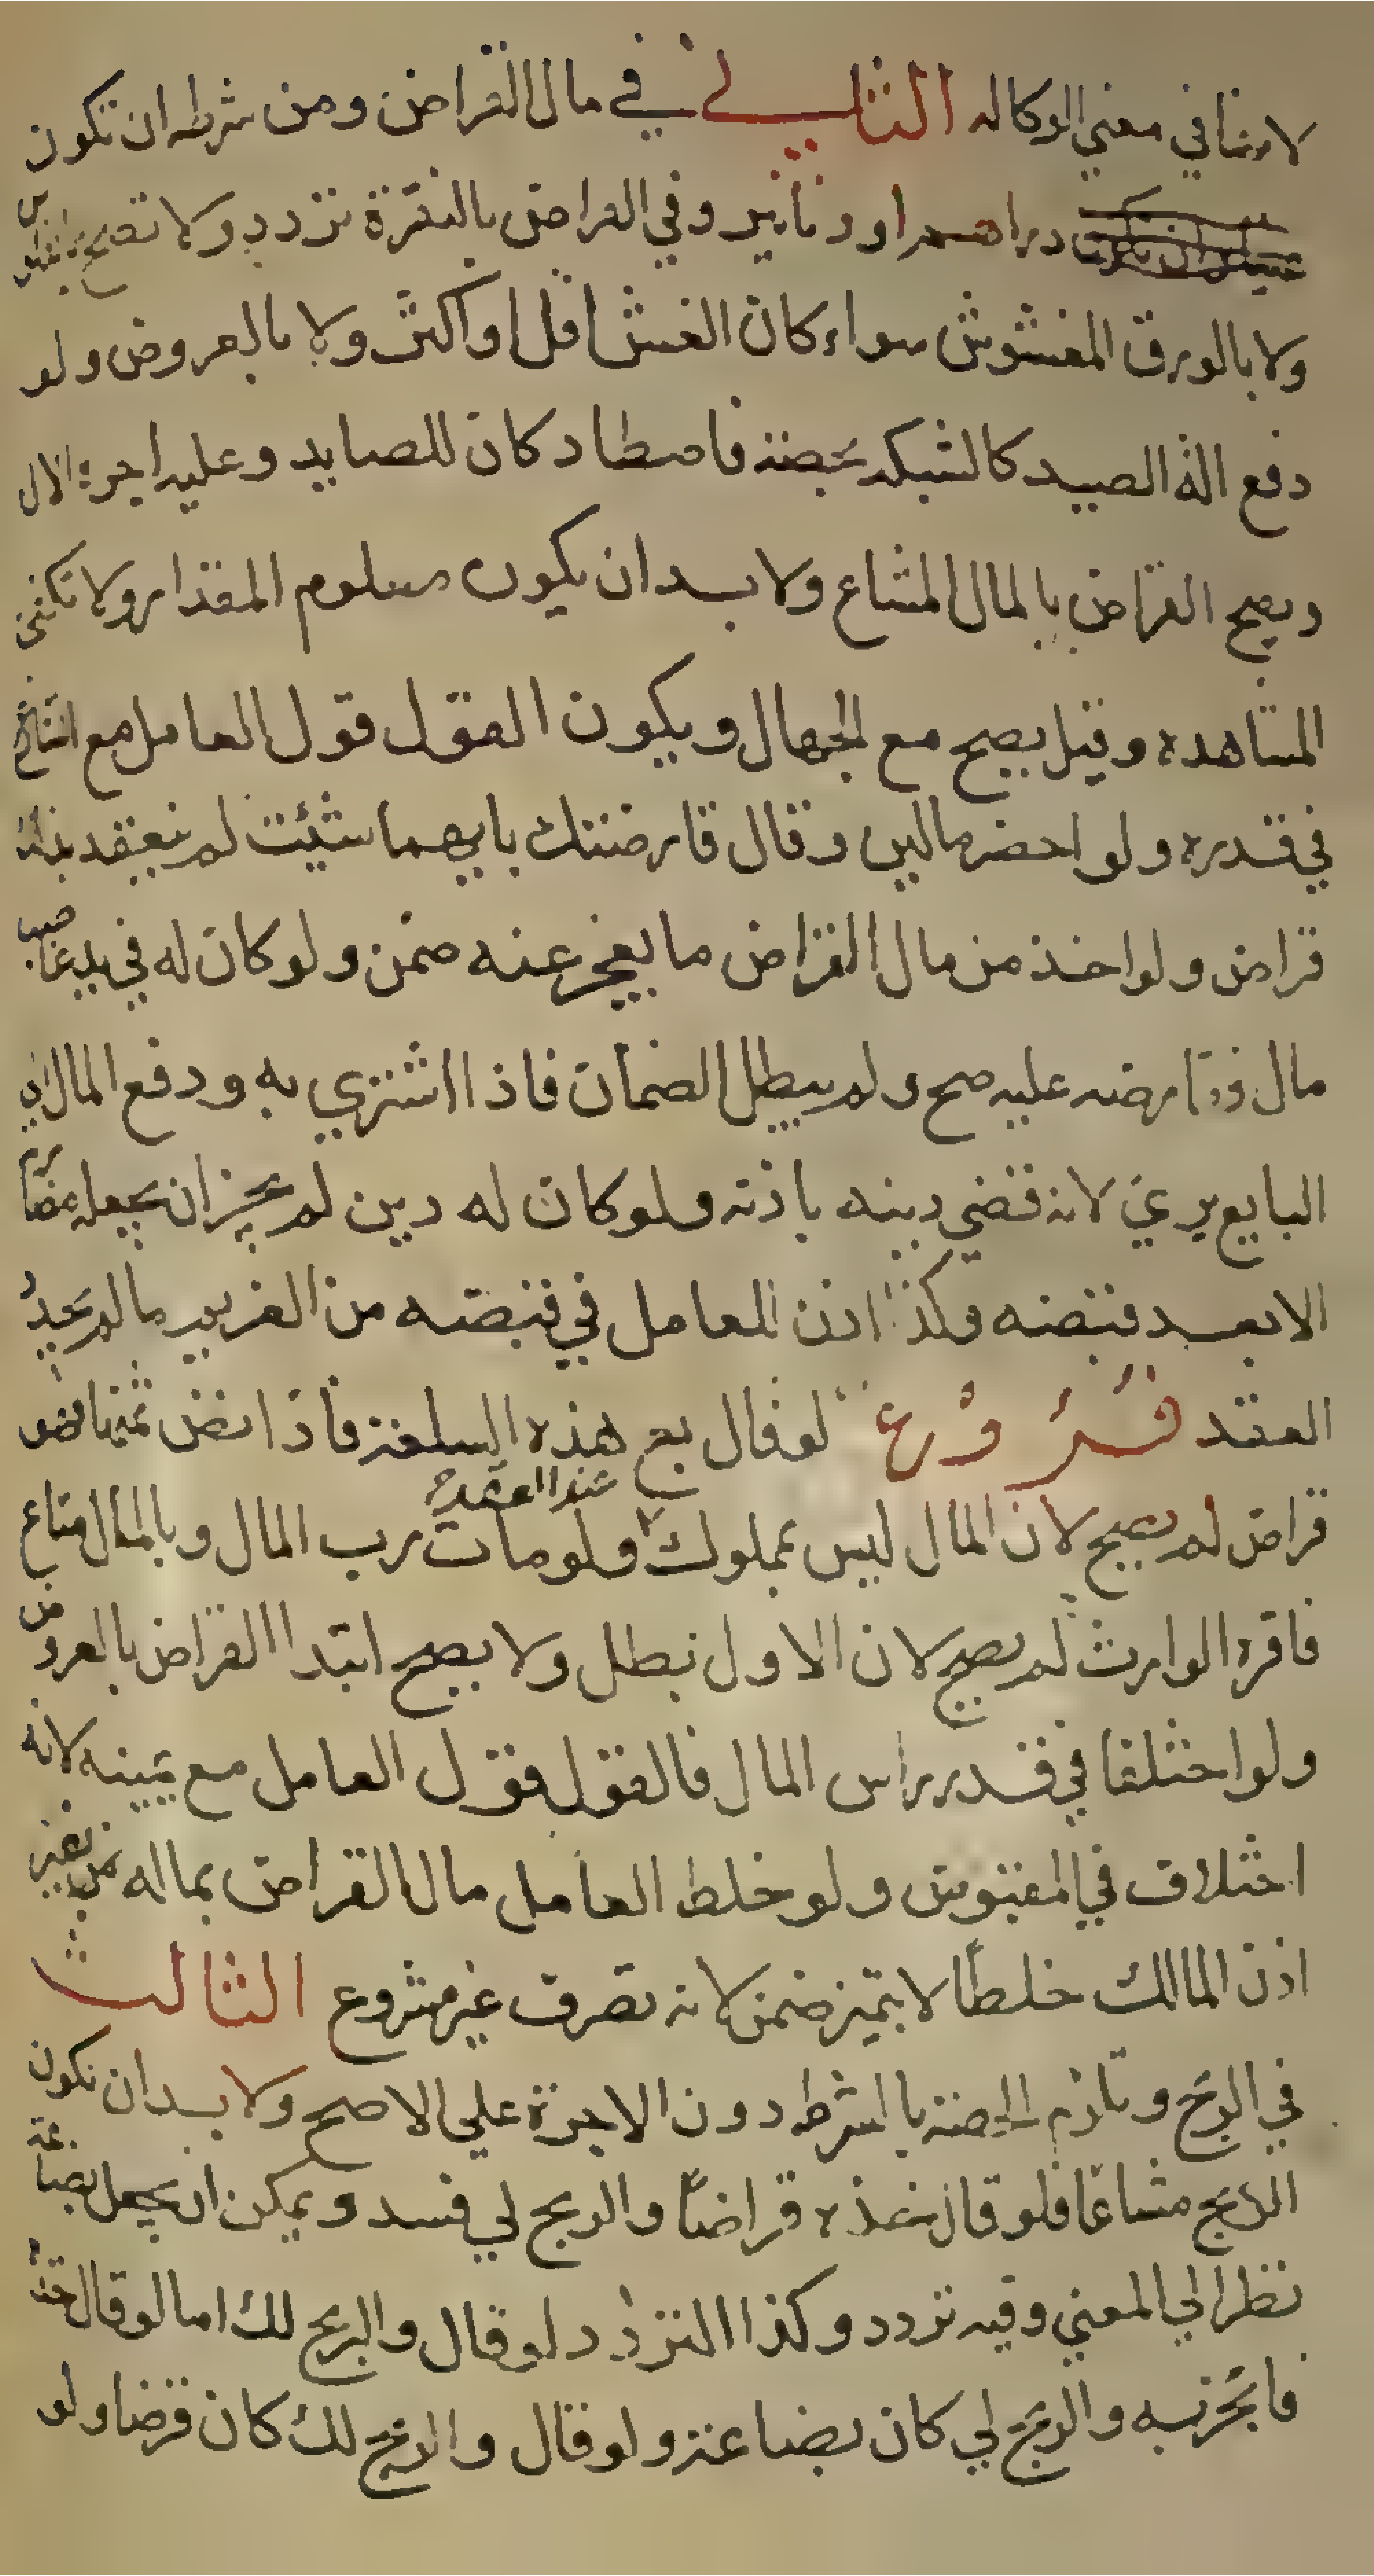 لامنافي معني الوكاله الثاني في مال القراض ومن شرطه ان تكون
دراهم او دنانير وفي القراض بالنقرة تردد ولا تصح بالفلوس
ولا بالورق المغشوش سواء كان الغش اقل او اكثر ولا بالعروض ولو
دفع الة الصيد كالشبكه بحصة فاصطاد كان للصايد وعليه اجرة الال
ويصح القراض بالمال المشاع ولا بد ان يكون معلوم المقدار ولا تكفي
المشاهده وقيل يصح مع الجهال ويكون القول قول العامل مع التنازع
في قدره ولو احضر مالين وقال قارضتك بايهما شئت لم ينعقد بذلك
قراض ولو اخذ من مال القراض ما يعجز عنه ضمن ولو كان له في يد غاصب
مال فقارضه عليه صح ولم يبطل الضمان فاذا اشتري به ودفع المال الي
البايع بري لانه قضي دينه باذنه ولو كان له دين لم يجز ان يجعله مضاربه
الا بعد قبضه وكذا اذن للعامل في قبضه من الغريم مالم يجدد
العقد فروع لو قال بع هذه السلعة فاذا نض ثمنها فهو
قراض لم يصح لان المال ليس بمملوك عند العقد ولو مات رب المال وبالمال متاع
فاقره الوارث لم يصح لان الاول بطل ولا يصح ابتدا القراض بالعروض
ولو اختلفا في قدر راس المال فالقول قول العامل مع يمينه لانه
اختلاف في المقبوض ولو خلط العامل مال القراض بماله بغير
اذن المالك خلطًا لا يتميز ضمن لانه تصرف غير مشروع الثالث
في الربح وتلزم الحصة بالشرط دون الاجرة علي الاصح ولا بد ان تكون
الربح مشاعًا فلو قال خذه قراضًا والربح لي فسد ويمكن ان يجعل بضاعة
نظرا الي المعني وفيه تردد وكذا التردد لو قال والربح لك اما لو قال خذه
فاتجر به والربح لي كان بضاعة ولو قال والربح لك كان قرضا ولو